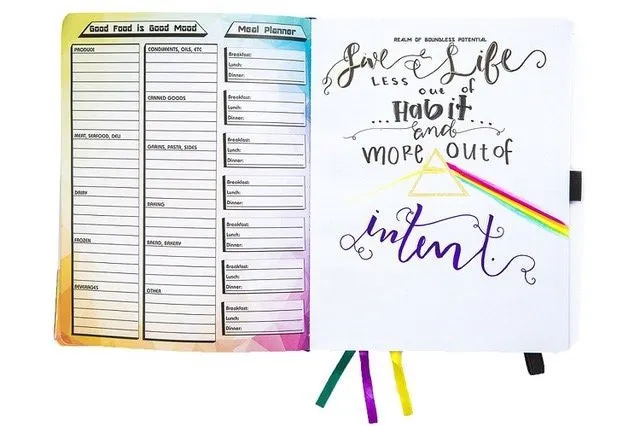 Good Food is Good Mood
PRODUCE
MEAT, SEAFOOD, DELI
DAIRY
FROZEN
BEVERAGES
CONDIMENTS, OILS, ETC
CANNED GOODS
GRAINS, PASTA, SIDES
BAKING
BREAD, BAKERY
OTHER
Meal Planner
Breakfast:
Lunch:
Dinner:
Breakfast:
Lunch:
Dinner:
Breakfast:
Lunch:
Dinner:
Breakfast:
Lunch:
Dinner:
Breakfast:
Lunch:
Dinner:
Breakfast:
Lunch:
Dinner:
Breakfast:
Lunch:
Dinner:
REALM OF BOUNDLESS POTENTIAL
Live Life
LESS out of
Habit
...and...
more out of
intent.